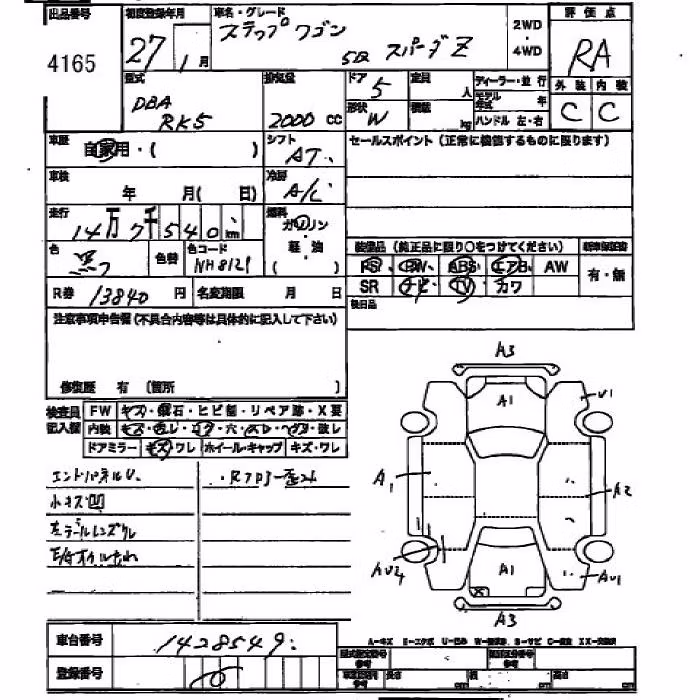 出品番号
4165
初度登録年月
27年1月
車名・グレード
ステップワゴン
5D スパーダZ
2WD
・
4WD
評価点
RA
外装 内装
C C
型式
DBA
RK5
排気量
2000 CC
ドア
5
形状
W
定員
人
積載
kg
ディーラー・並行
モデル年式 年
ハンドル 左・右
車歴
自家用・( )
シフト
AT
セールスポイント (正常に機能するものに限ります)
車検
年 月( 日)
冷房
A/C
走行
14万7千540km
燃料
ガソリン
・
軽油
( )
色
黒
色替
色コード
NH812P
装備品 (純正品に限り○をつけてください)
新車保証書
PS PW ABS エアB AW
SR ナビ TV カワ
有・無
後日品
R券 13840 円
名変期限 月 日
注意事項申告欄 (不具合内容等は具体的に記入して下さい)
修復歴 有 [箇所 ]
検査員記入欄
FW キズ・飛石・ヒビ割・リペア跡・X要
内装 キズ・汚レ・コゲ・穴・スレ・ヘタリ・破レ
ドアミラー キズ・ワレ ホイール・キャップ キズ・ワレ
エンドパネルU
小キズ凹
左テールレンズワレ
・Rフロアー歪み
A3
A1
U1
A1
A2
AU2
A1
AU1
A3
車台番号
1428549
登録番号
A-キズ E-エクボ U-凹み W-補修跡 S-サビ C-腐食 XX-交換済
型式指定番号
参考
類別区分番号
参考
長さ cm
幅 cm
高さ cm